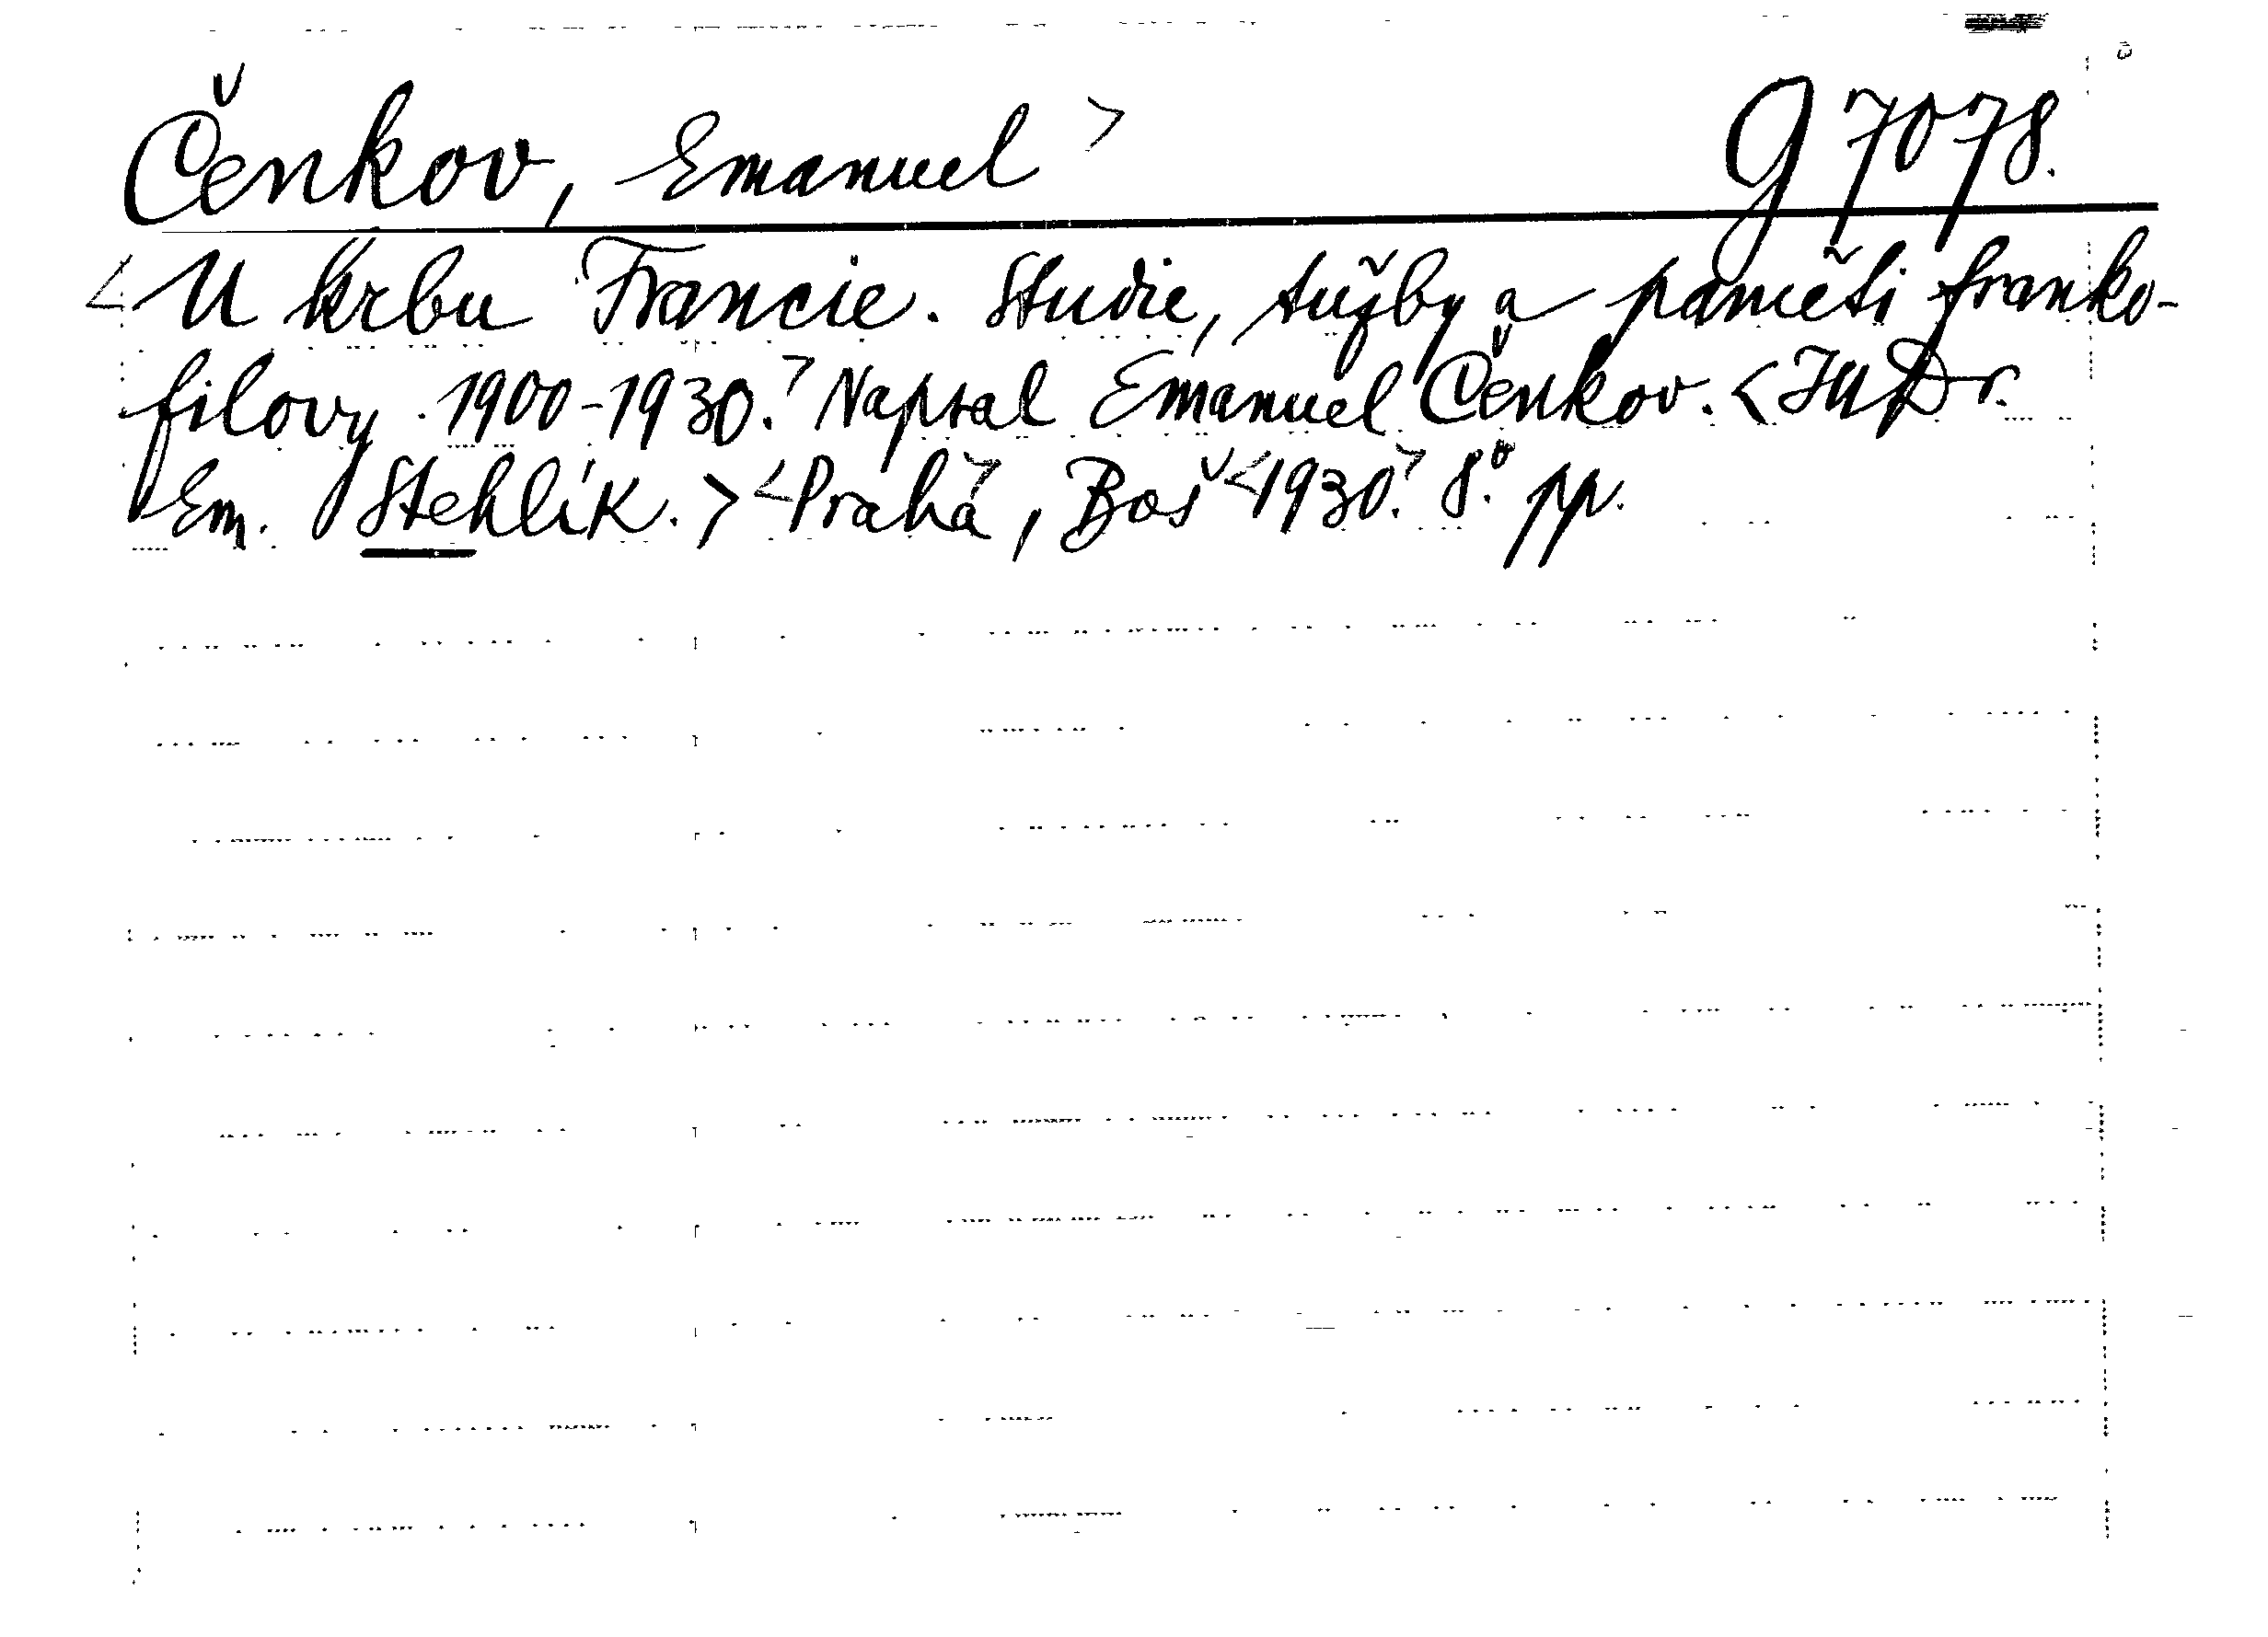 Čenkov, Emanuel > g 7078.
< U krbu Francie. Studie, tužby a paměti franko-
filovy. 1900-1930.> Napsal Emanuel Čenkov. < JUDr.
Em. Stehlík. > <Praha>, Boš <1930.> 8° pp.